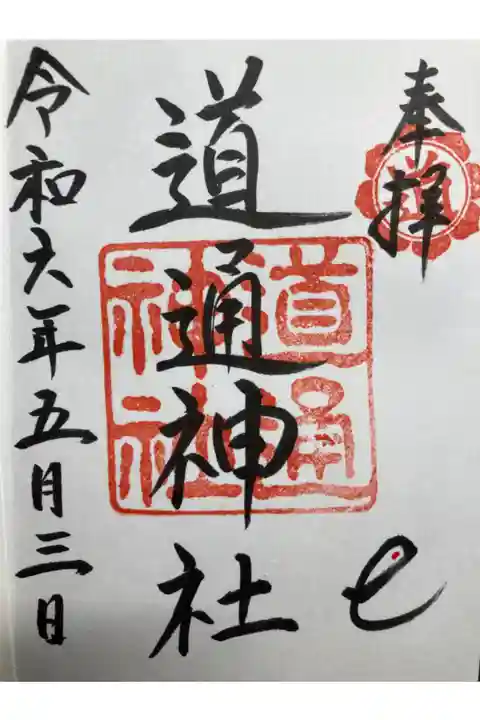 奉拝
道
道通神社
道通神社
令和六年五月三日